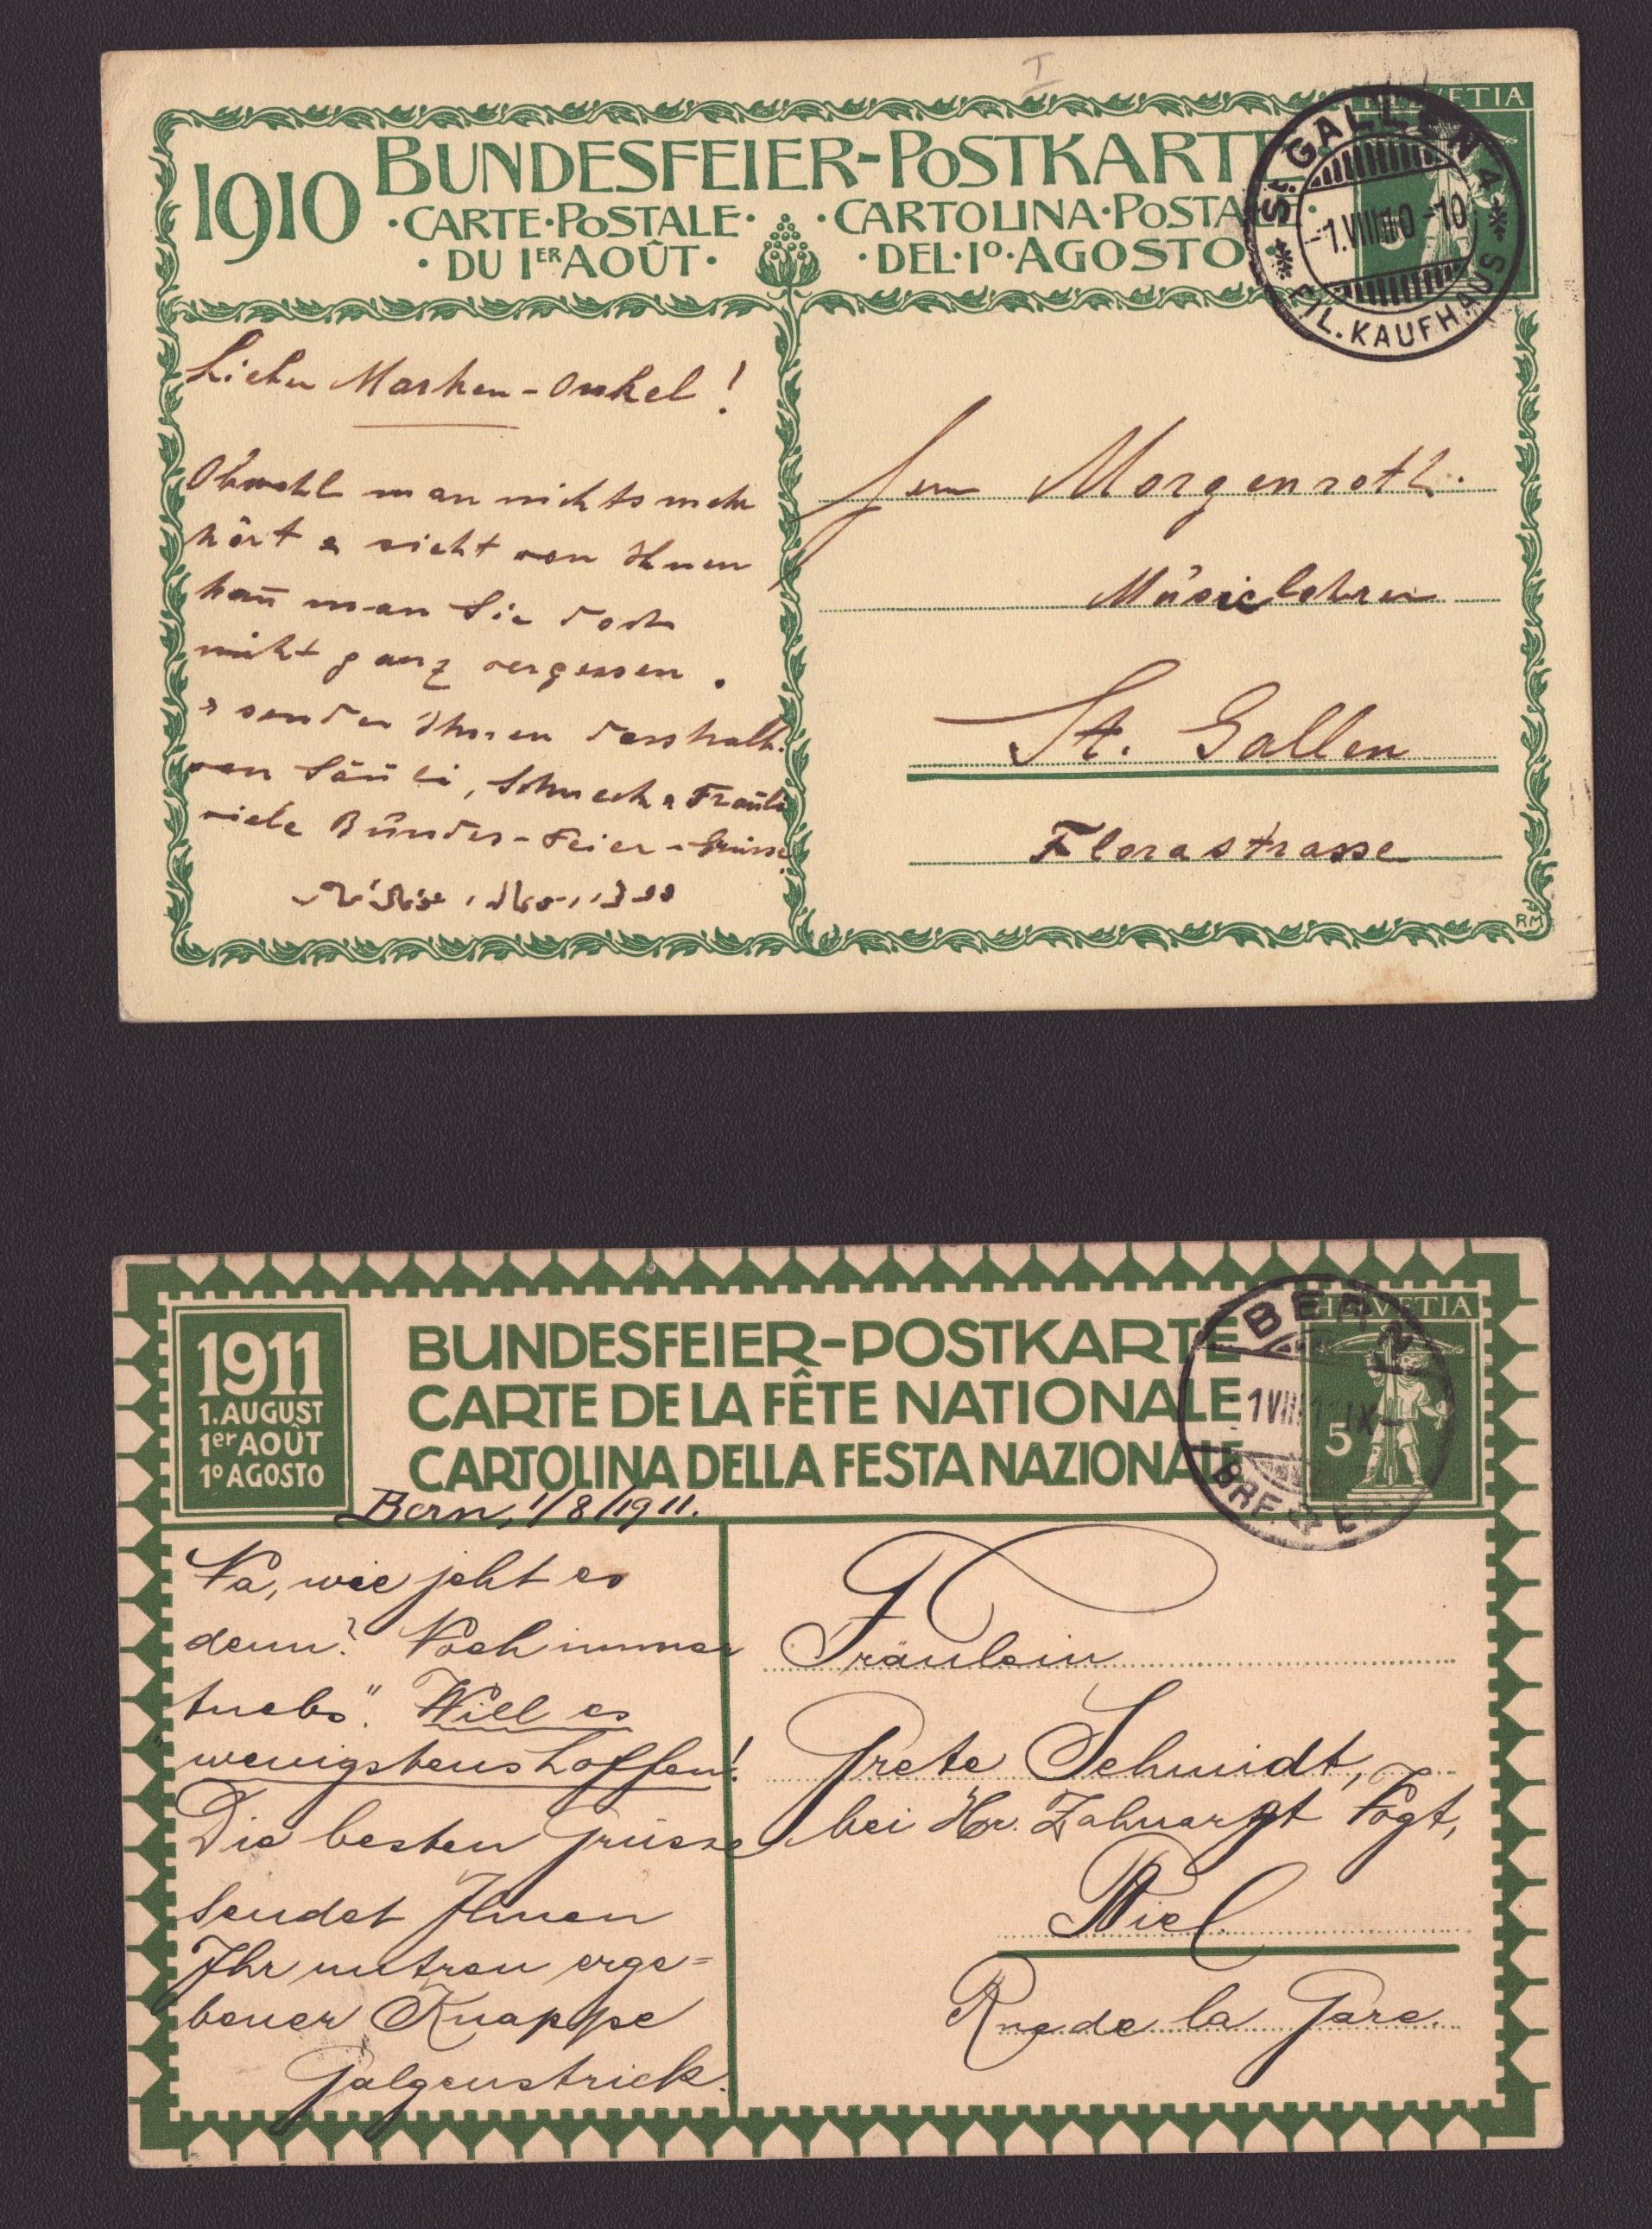 I
HELVETIA
1910 BUNDESFEIER-POSTKARTE
·CARTE·POSTALE· ·CARTOLINA·POSTALE·
·DU 1ER AOÛT· ·DEL·1º·AGOSTO
ST. GALLEN 4
-1.VIII.10-10
FIL. KAUFHAUS
Lieber Marken-Onkel!
Obwohl man nichts mehr
hört & sieht von Ihnen
kan̄ man Sie doch
nicht ganz vergessen.
senden Ihnen desshalb
von Säuli, Schneck & Fräuli
viele Bundes-Feier-Grüsse
Herrn Morgenroth.
Musiclehrer
St. Gallen
Florastrasse
RM
HELVETIA
5
1911
1. AUGUST
1er AOÛT
1º AGOSTO
BUNDESFEIER-POSTKARTE
CARTE DE LA FÊTE NATIONALE
CARTOLINA DELLA FESTA NAZIONALE
BERN
1 VIII 11 IX-
BRF.
Bern, 1/8/1911.
Na, wie jeht es
denn? Noch immer
"wenigstens hoffen!
Will es
Die besten Grüsse
sendet Ihnen
Ihr untreu erge=
bener Knappe
Galgenstrick.
Fräulein
Grete Schmidt,
bei Hr. Zahnarzt Vogt,
Biel.
Rue de la Gare.